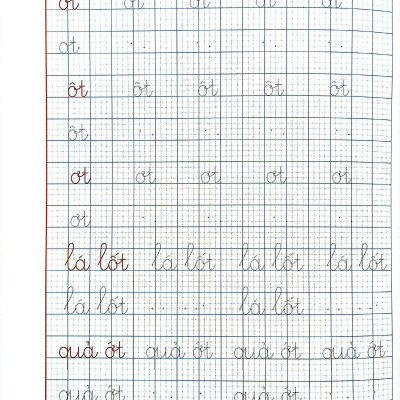 ot ot ot ot ot
ot
ôt ôt ôt ôt ôt
ôt
ơt ơt ơt ơt ơt
ơt
lá lốt lá lốt lá lốt lá lốt
lá lốt lá lốt
quả ớt quả ớt quả ớt quả ớt
quả ớt quả ớt